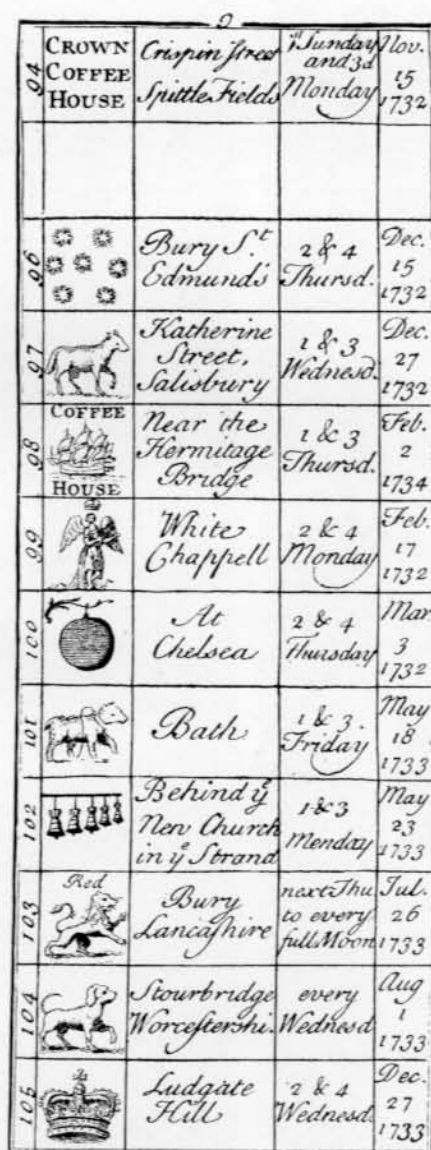 9
94
CROWN
COFFEE
HOUSE
Crispin Street
Spittle Fields
1st Sunday
and 3d
Monday
Nov.
15
1732
96
Bury St.
Edmund's
2 & 4
Thursd.
Dec.
15
1732
97
Katherine
Street,
Salisbury
1 & 3
Wednesd.
Dec.
27
1732
98
COFFEE
HOUSE
Near the
Hermitage
Bridge
1 & 3
Thursd.
Feb.
2
1734
99
White
Chappell
2 & 4
Monday
Feb.
17
1732
100
At
Chelsea
2 & 4
Thursday
Mar.
3
1732
101
Bath
1 & 3
Friday
May
18
1733
102
Behind ye
New Church
in ye Strand
1 & 3
Menday
May
23
1733
103
Red
Bury
Lancashire
next Thu
to every
full Moon
Jul.
26
1733
104
Stourbridge
Worcestershi.
every
Wednesd
Aug
1
1733
105
Ludgate
Hill
2 & 4
Wednesd.
Dec.
27
1733